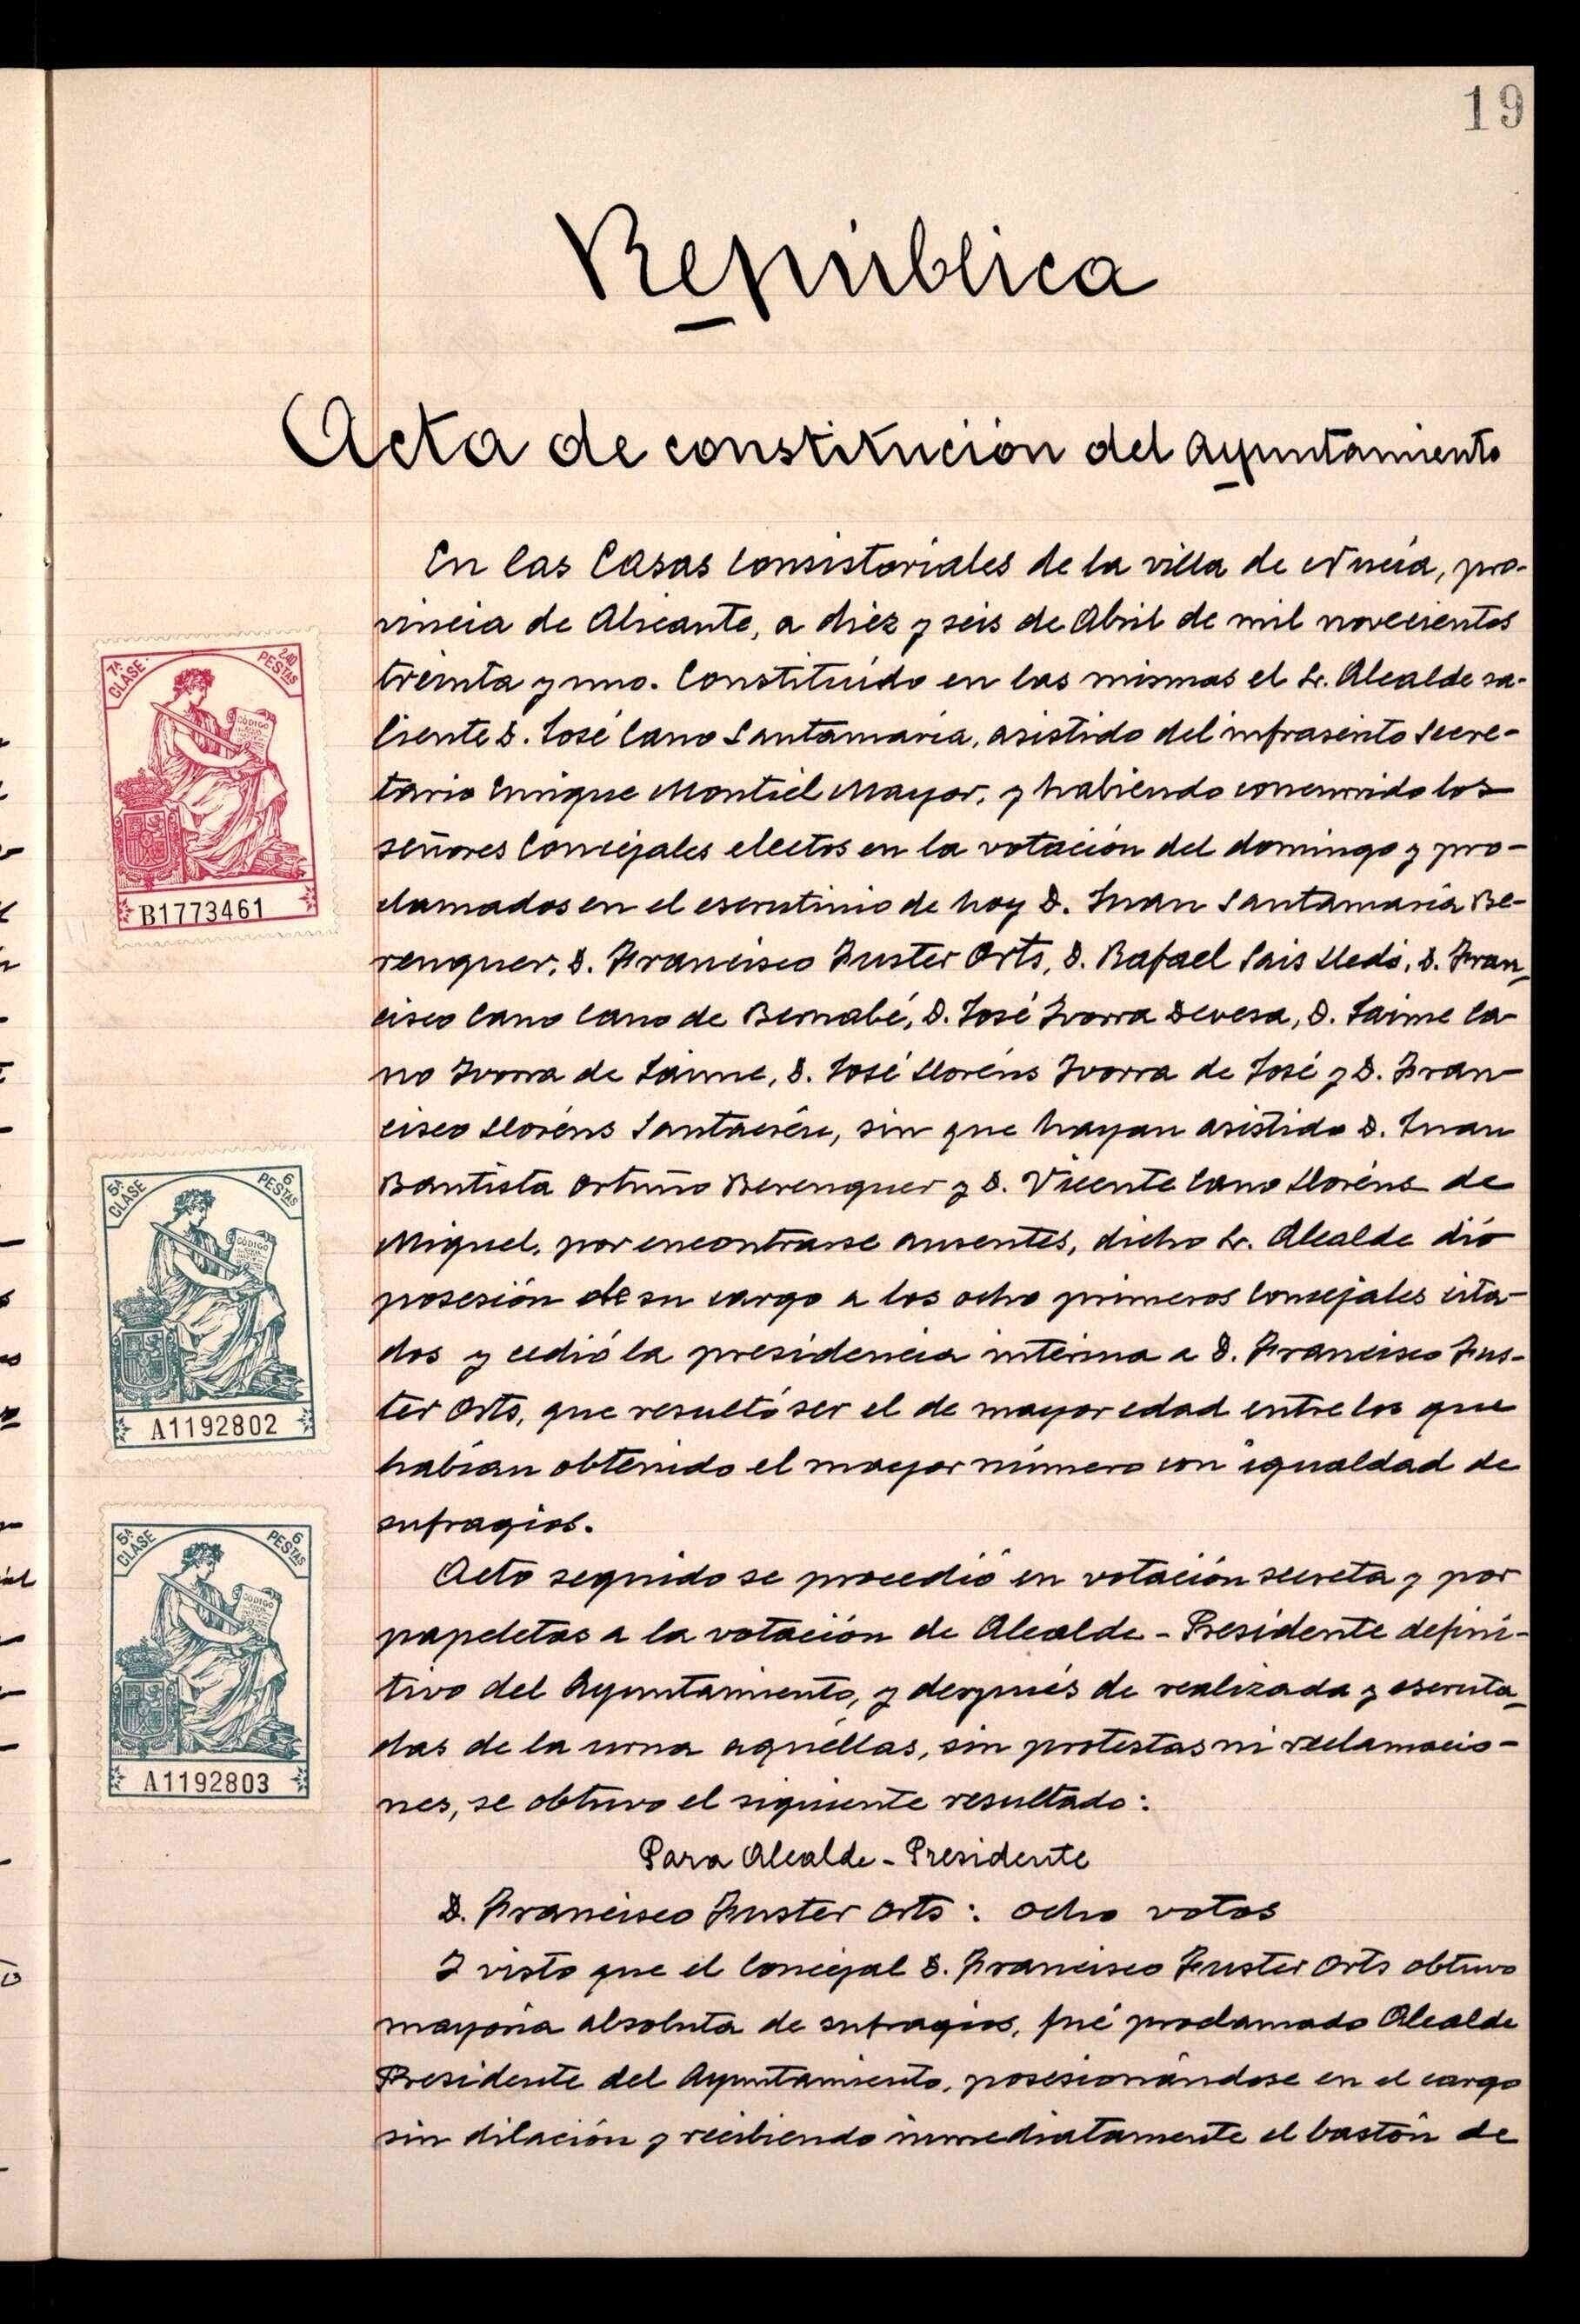 19
República
Acta de constitución del Ayuntamiento
En las Casas Consistoriales de la villa de Nucía, pro-
vincia de Alicante, a diez y seis de Abril de mil novecientos
treinta y uno. Constituído en las mismas el Sr. Alcalde sa-
liente D. José Cano Santamaría, asistido del infrascrito Secre-
tario Enrique Montiel Mayor, y habiendo concurrido los
señores Concejales electos en la votación del domingo y pro-
clamados en el escrutinio de hoy D. Juan Santamaría Be-
renguer, D. Francisco Fuster Orts, D. Rafael Sais Lledó, D. Fran-
cisco Cano Cano de Bernabé, D. José Ivorra Devesa, D. Jaime Ca-
no Ivorra de Jaime, D. José Lloréns Ivorra de José y D. Fran-
cisco Lloréns Santacréu, sin que hayan asistido D. Juan
Bautista Ortuño Berenguer y D. Vicente Cano Lloréns de
Miguel, por encontrarse ausentes, dicho Sr. Alcalde dió
posesión de su cargo a los ocho primeros Concejales cita-
dos y cedió la presidencia interina a D. Francisco Fus-
ter Orts, que resultó ser el de mayor edad entre los que
habían obtenido el mayor número con igualdad de
sufragios.
Acto seguido se procedió en votación secreta y por
papeletas a la votación de Alcalde-Presidente defini-
tivo del Ayuntamiento, y después de realizada y escruta-
das de la urna aquéllas, sin protestas ni reclamacio-
nes, se obtuvo el siguiente resultado:
Para Alcalde-Presidente
D. Francisco Fuster Orts: ocho votos
Y visto que el Concejal D. Francisco Fuster Orts obtuvo
mayoría absoluta de sufragios, fué proclamado Alcalde
Presidente del Ayuntamiento, posesionándose en el cargo
sin dilación y recibiendo inmediatamente el bastón de
7ª CLASE
2,40 PESTAS
CÓDIGO
B1773461
5ª CLASE
6 PESTAS
CÓDIGO
A1192802
5ª CLASE
6 PESTAS
CÓDIGO
A1192803